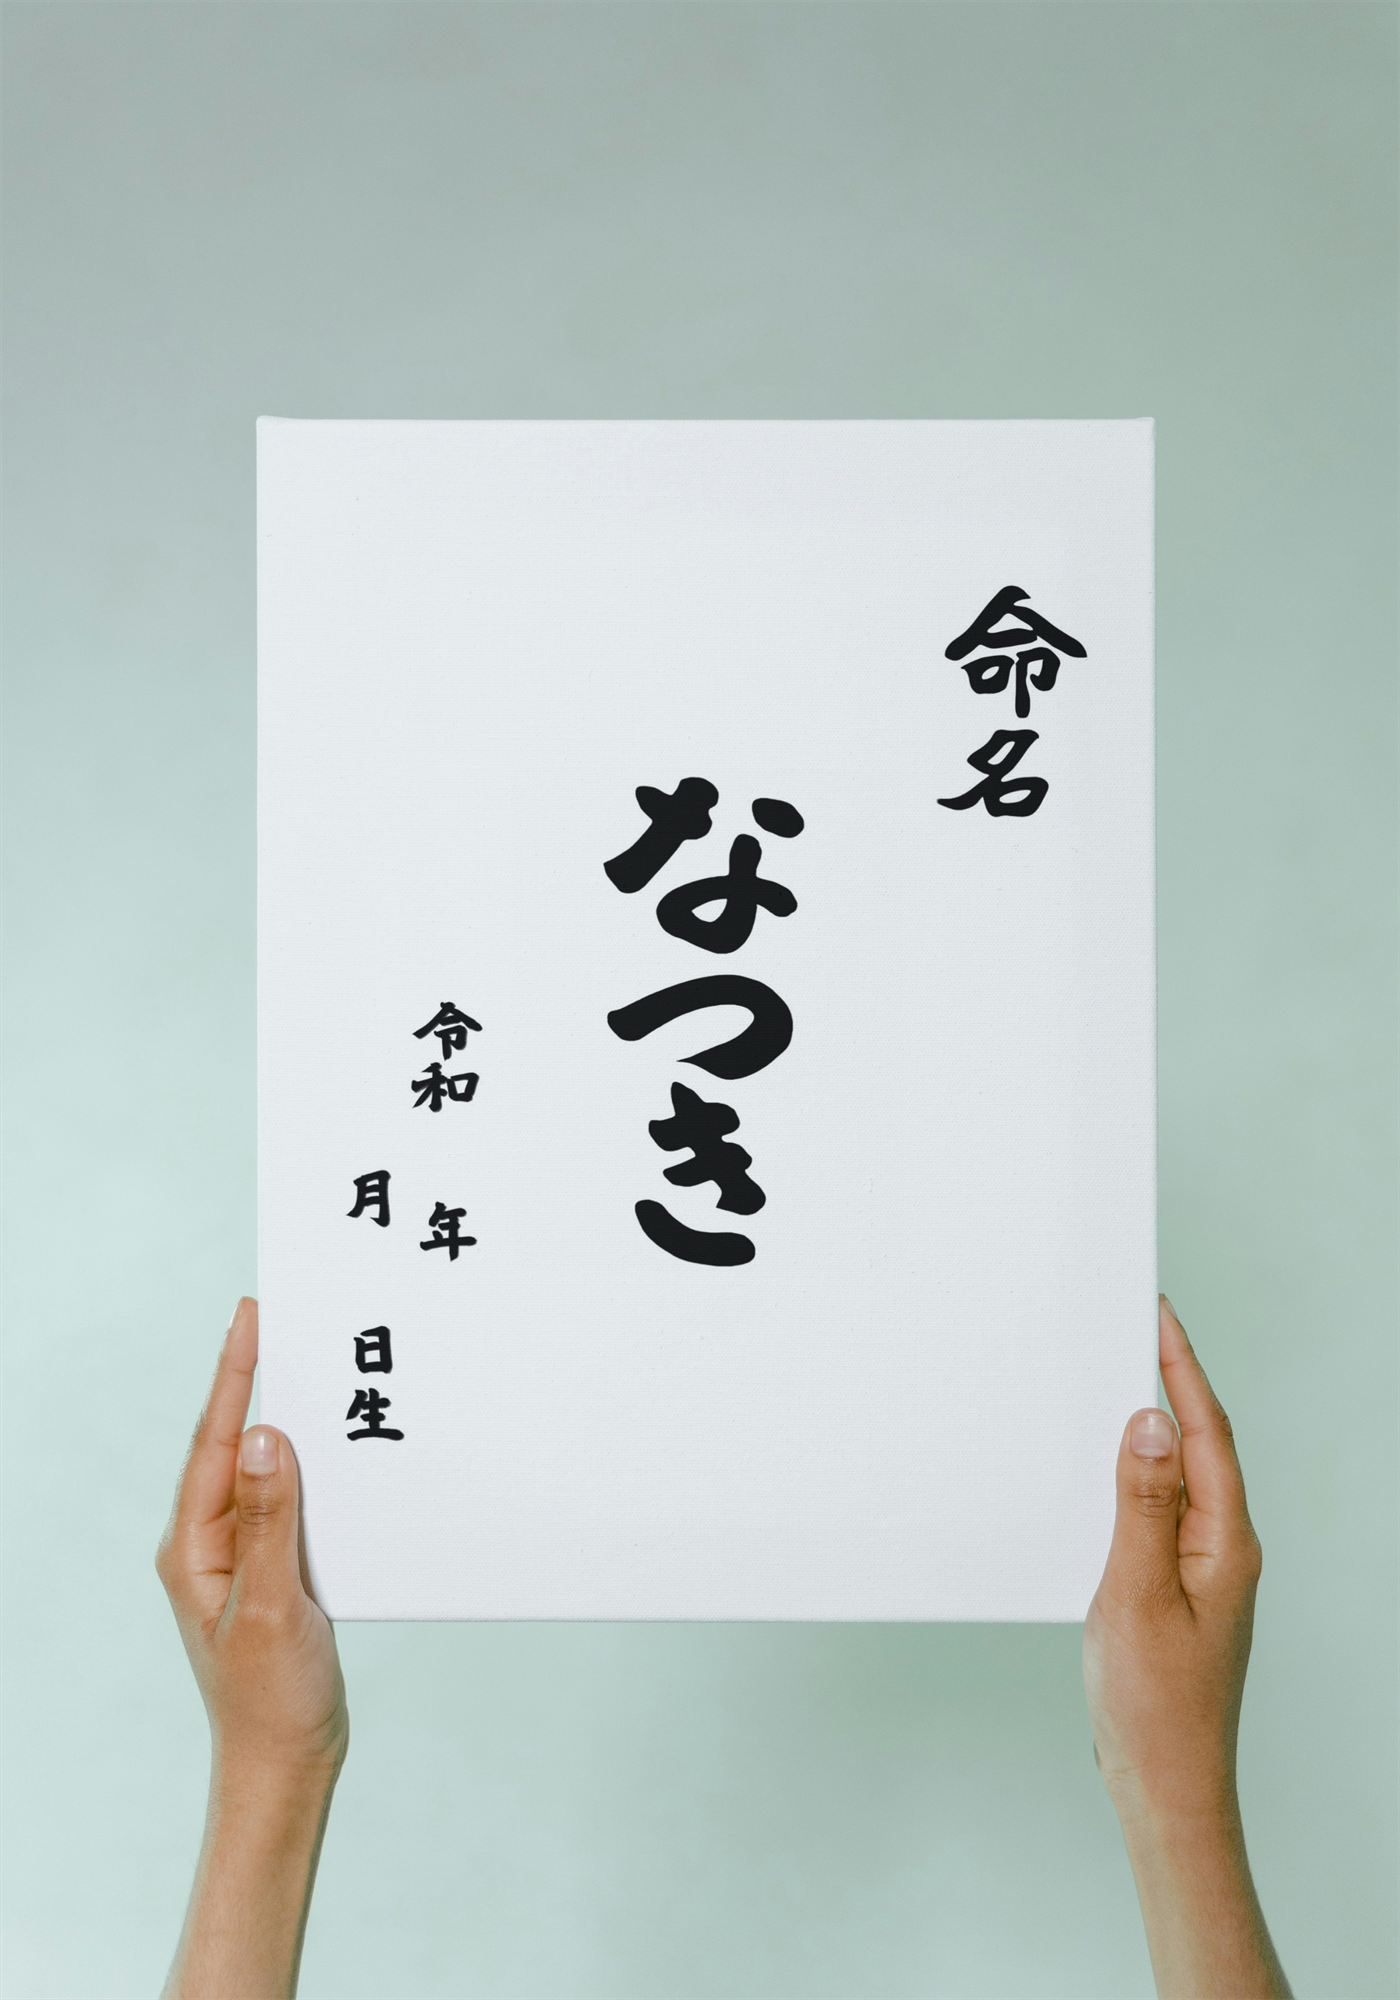 命名
なつき
令和 年
月 日生